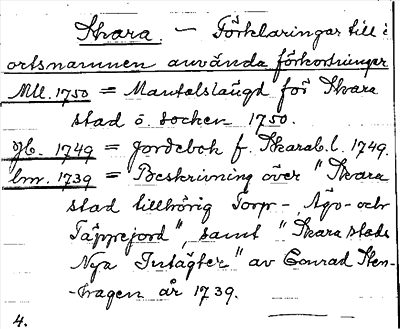 Skara. - Förklaringar till i
ortsnamnen använda förkortningar
Mtl. 1750 = Mantalslängd för Skara
stad o. socken 1750.
Jb. 1749 = Jordebok f. Skarab. l. 1749.
bnr. 1739 = Beskrivning över "Skara
stad tillhörig Torp-, Ägo- och
Täpprejord", samt "Skara stads
Nya Intägter" av Conrad Sten-
-hagen år 1739.
4.